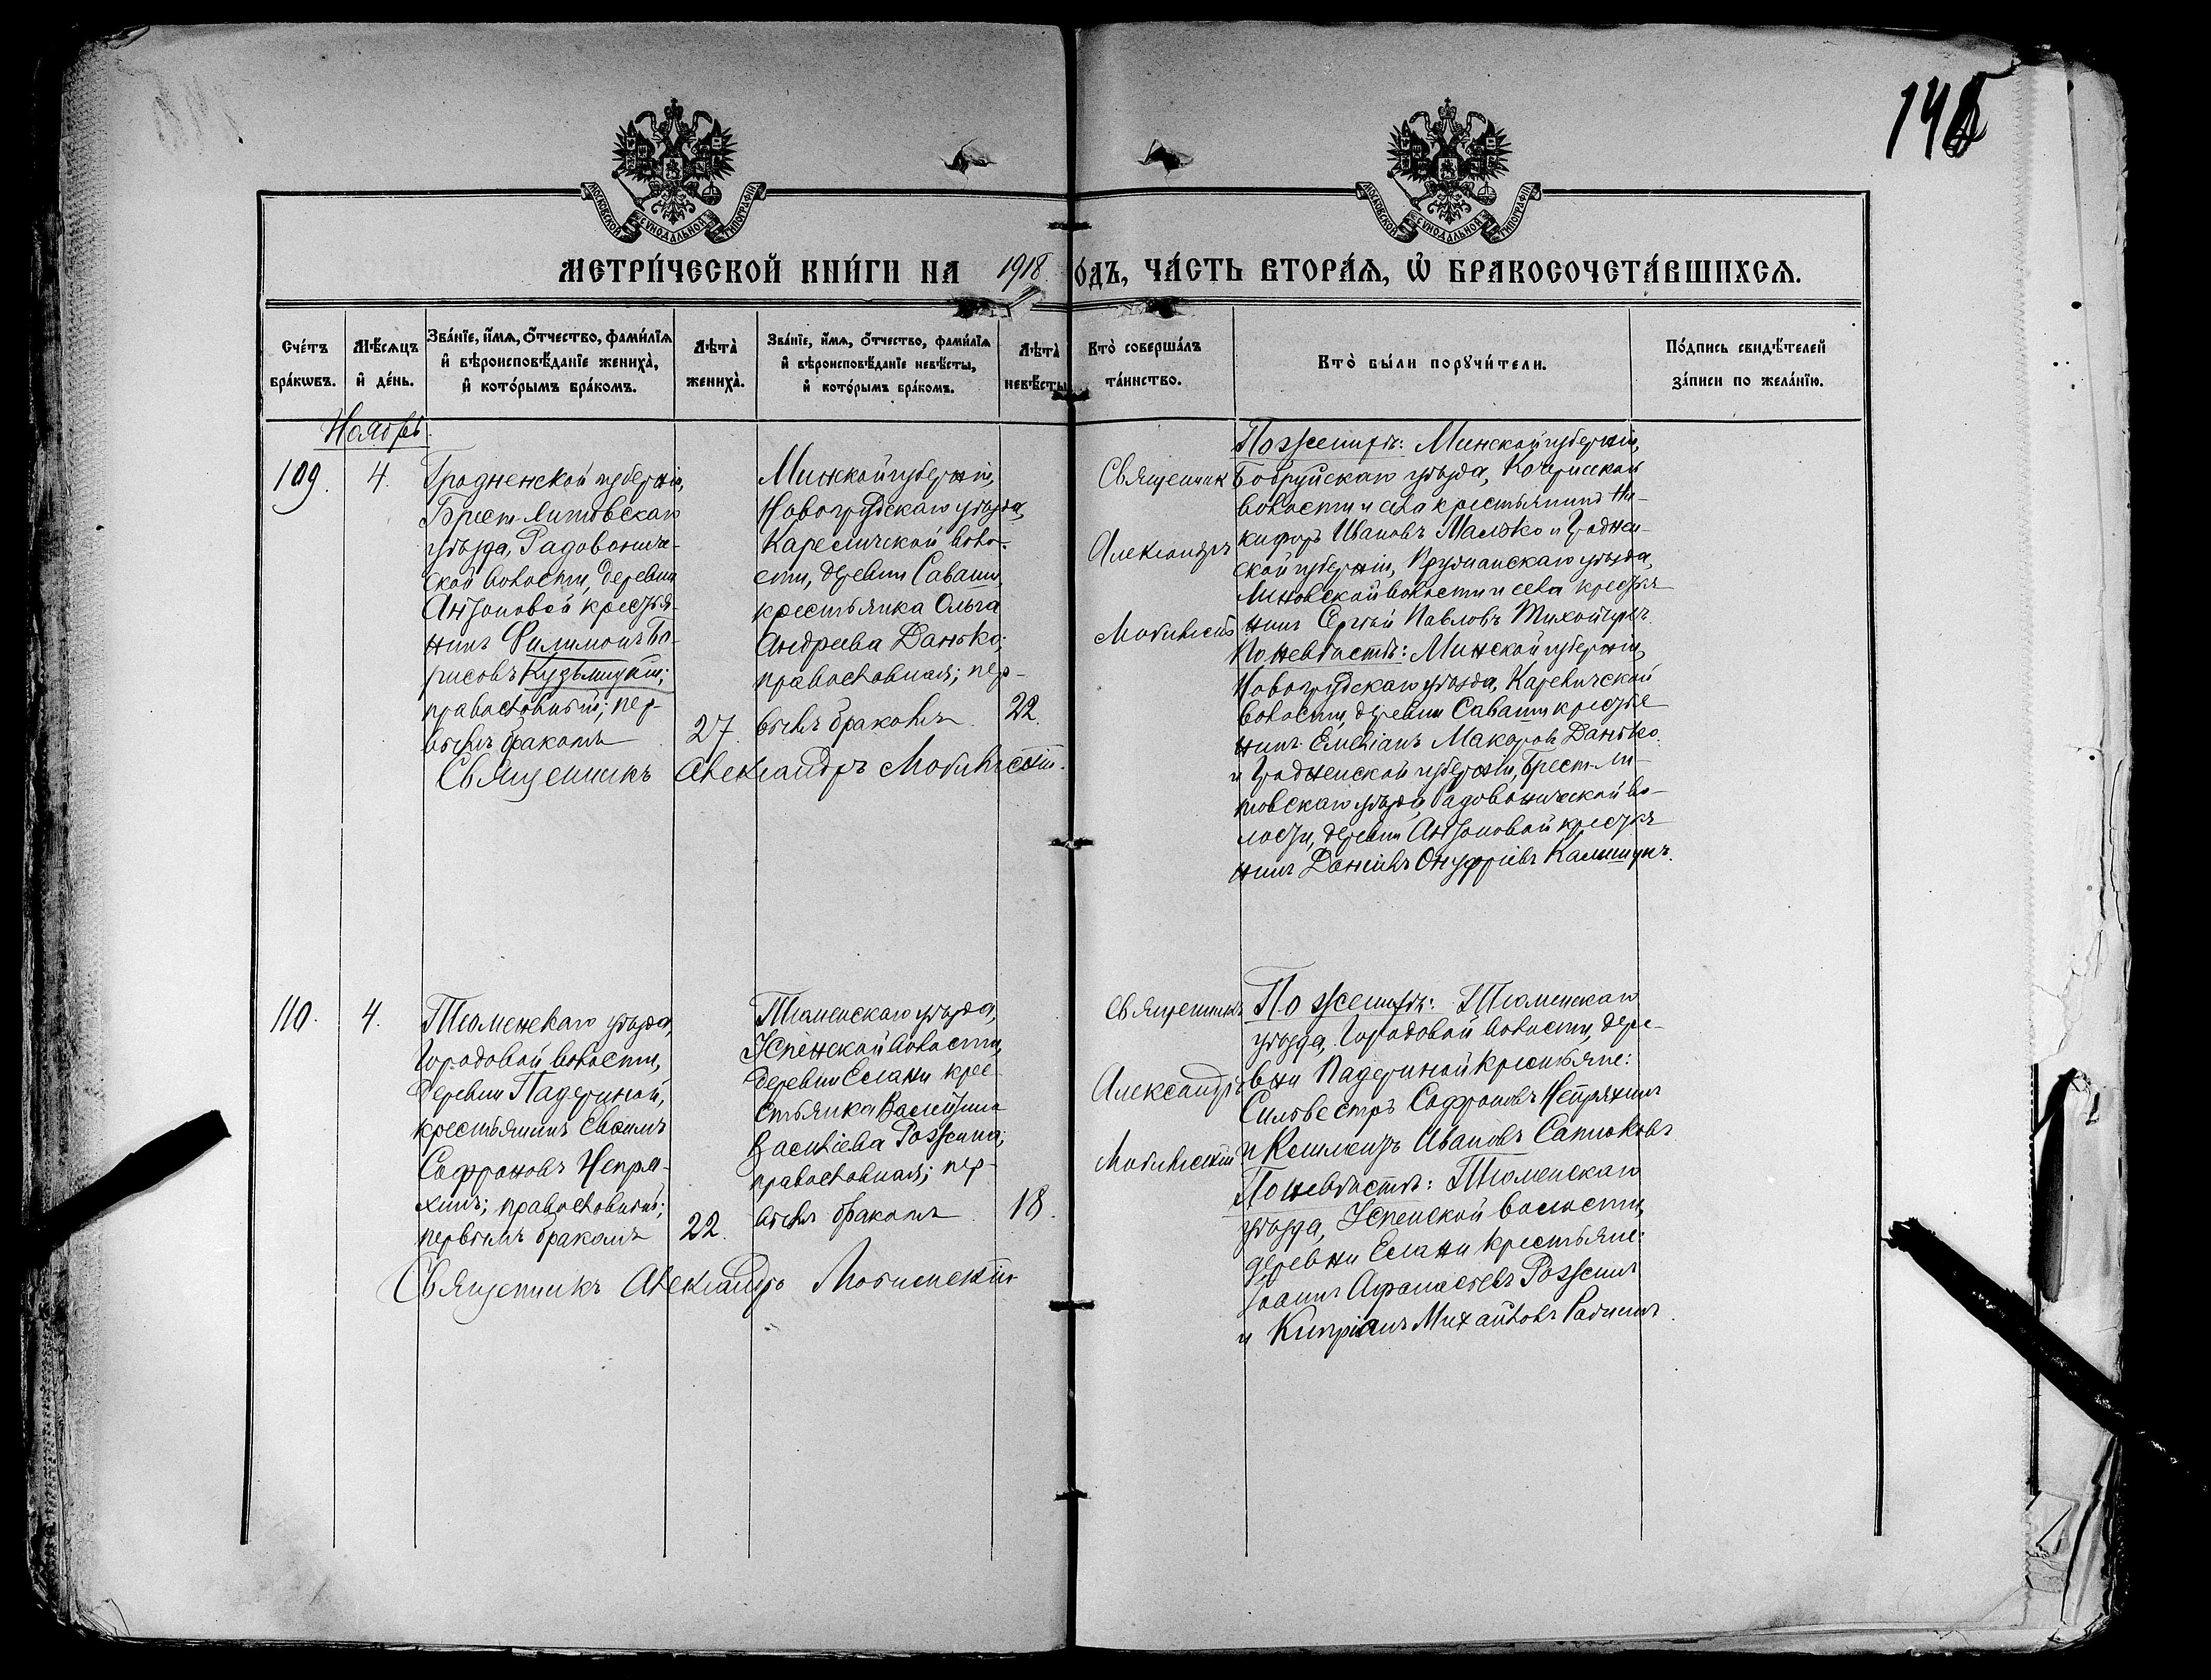 146
МОСКОВСКОЙ СѴНОДАЛЬНОЙ ТИПОГРАФІИ
МОСКОВСКОЙ СѴНОДАЛЬНОЙ ТИПОГРАФІИ
МЕТРИ́ЧЕСКОЙ КНИ́ГИ НА 1918 ГО́ДЪ, ЧА́СТЬ ВТОРА́Ѧ, Ѽ БРАКОСОЧЕТА́ВШИХСѦ.
Сче́тъ бра́кѡвъ.
Мѣ́сѧцъ и҆ де́нь.
Зва́нїе, и҆́мѧ, ѻ҆́тчество, фами́лїѧ
и҆ вѣроисповѣ́данїе жениха̀,
и҆ кото́рымъ бра́комъ.
Лѣта̀ жениха̀.
Зва́нїе, и҆́мѧ, ѻ҆́тчество, фами́лїѧ
и҆ вѣроисповѣ́данїе невѣ́сты,
и҆ кото́рымъ бра́комъ.
Лѣта̀ невѣ́сты
Кто̀ соверша́лъ та́инство.
Кто̀ бы́ли порꙋчи́тели.
По́дпись свидѣ́телей
за́писи по жела́нїю.
Ноябрь.
109.
4.
Гродненской губерніи,
Брест-Литовскаго
уѣзда, Радовониче-
ской волости, деревни
Антоновой крестья-
нинъ Филимонъ Бо-
рисовъ Кузьмицкій;
православный; пер-
вымъ бракомъ
27.
Минской губерніи,
Новогрудскаго уѣзда,
Кареличской воло-
сти, деревни Саваши,
крестьянка Ольга
Андреева Данько;
православная; пер-
вымъ бракомъ
22.
Священникъ Александръ
По женихѣ: Минской губерніи,
Бобруйскаго уѣзда,
волости и села крестьянинъ Ни-
кифоръ Ивановъ Малько и Гроднен-
ской губерніи, Пружанскаго уѣзда,
Линовской волости и села крестья-
нинъ Сергѣй Павловъ
По невѣстѣ: Минской губерніи,
Новогрудскаго уѣзда, Кареличской
волости, деревни Саваши крестья-
нинъ Емеліанъ Макаровъ Данько
и Гродненской губерніи, Брест-Ли-
товскаго уѣзда, Радовонической во-
лости, деревни Антоновой крестья-
нинъ Даніилъ Онуфріевъ
Священникъ Александръ
110.
4.
Тюменскаго уѣзда,
Городовой волости,
деревни Падериной,
крестьянинъ
Софроновъ Непря-
хинъ; православный;
первымъ бракомъ
22.
Тюменскаго уѣзда,
Успенской волости,
деревни Елани крес-
тьянка
Васильева Рожина;
православная; пер-
вымъ бракомъ
18.
Священникъ Александръ
По женихѣ: Тюменскаго
уѣзда, Городовой волости, дере-
вни Падериной крестьяне:
Сильвестръ Софроновъ Непряхинъ
и Ивановъ Сапожковъ
По невѣстѣ: Тюменскаго
уѣзда, Успенской волости,
деревни Елани крестьяне:
Іоаннъ Афанасьевъ Рожинъ
и Кипріанъ Михайловъ
Священникъ Александръ